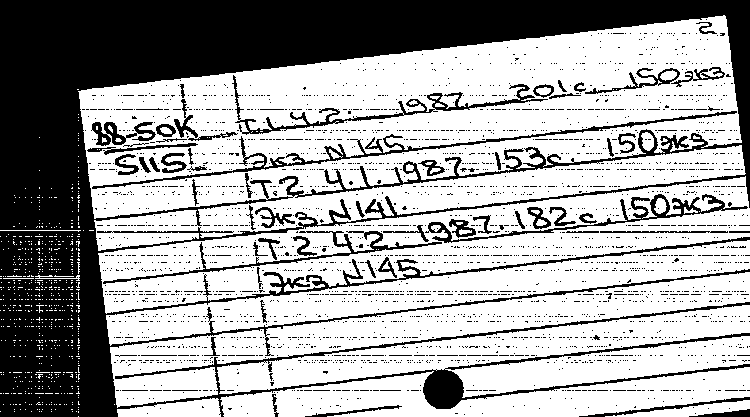 2.
88-50К Т.1.Ч.2. 1987. 201с. 150экз.
5115 Экз. N 145.
Т.2.Ч.1.1987. 153с. 150экз.
Экз. N141.
Т.2.Ч.2. 1987. 182с. 150экз.
Экз. N145.